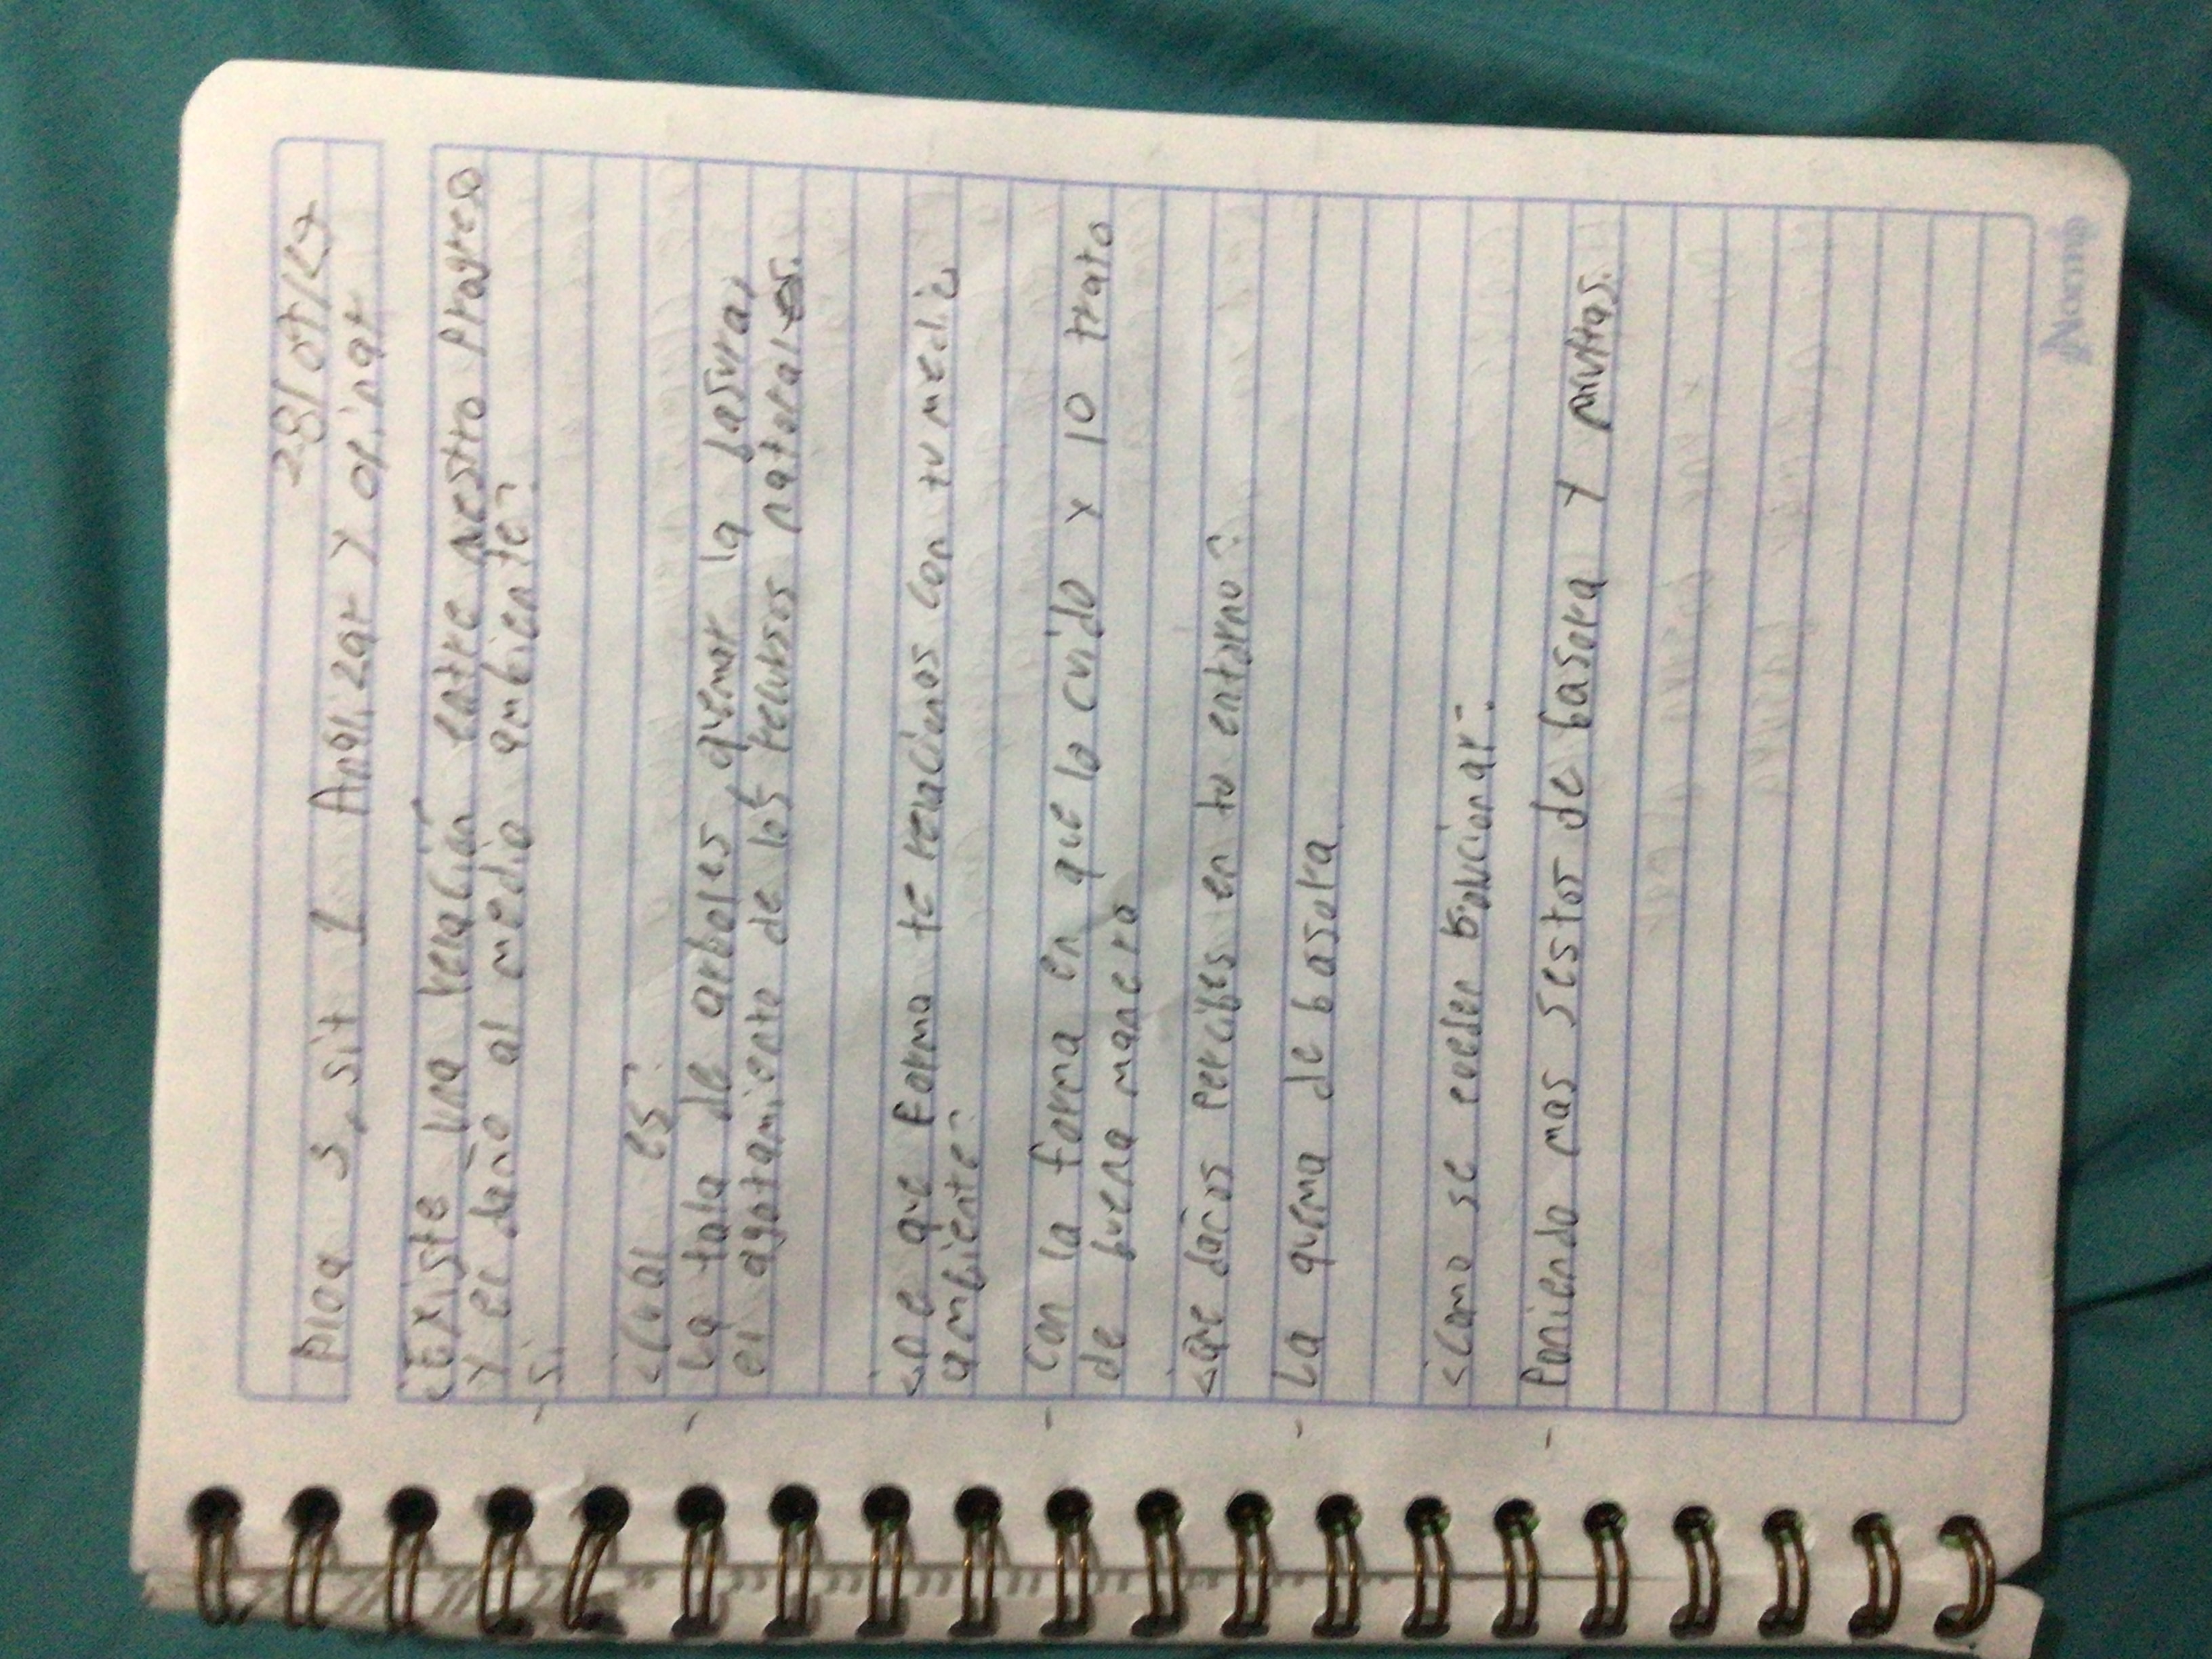 28/01/19
Ploa 3, sit 1 Analizar y opinar
¿Existe una relación entre nestro progreso
y el daño al medio ambiente?
- Si.
¿Cual es?
- La tala de arboles, quemar la basura,
el agotamiento de los recursos naturales.
¿De que Forma te relacionas con tu medio
ambiente?
- Con la forma en que lo cuido y lo trato
de buena manera
¿Que daños percibes en tu entorno?
- La quema de basura.
¿Como se pueden solucionar?
- Poniendo mas sestos de basura y multas.
Norma